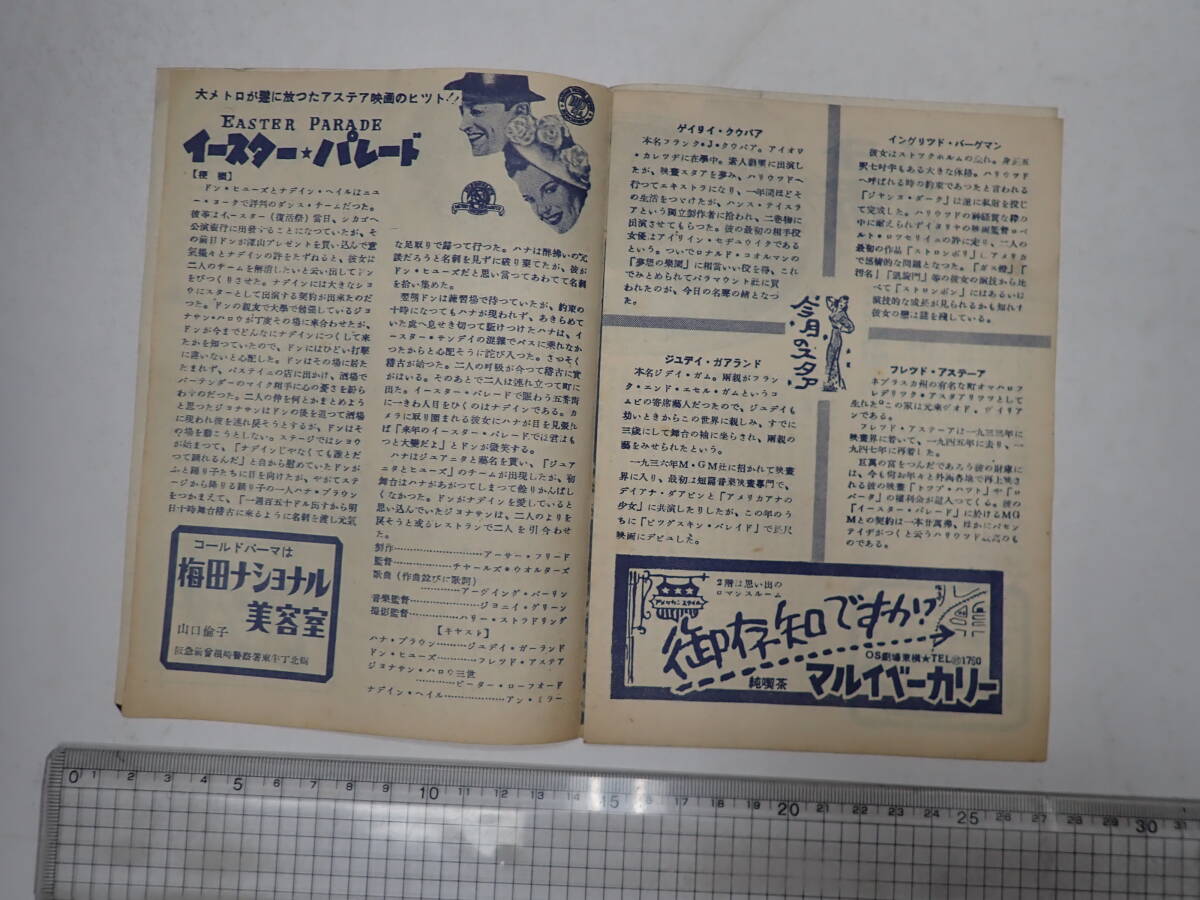 大メトロが遂に放つたアステア映画のヒツト!!
EASTER PARADE
イースター★パレード
【梗概】
ドン・ヒユーズとナデイン・ヘイルはニユ
ー・ヨークで評判のダンス・チームだつた。
彼等はイースター（復活祭）当日、シカゴへ
公演旅行に出発することになつていたが、そ
の前日ドンが沢山プレゼントを買い込んで意
気揚々とナデインの許をたずねると、彼女は
二人のチームを解消したいと云い出してドン
をびつくりさせた。ナデインには大きなシヨ
ウにスターとして出演する契約が出来たのだ
つた。ドンの親友で大學で勉強しているジヨ
ナサン・ハロウが丁度その場に来合わせたが、
ドンが今までどんなにナデインにつくして来
たかを知つていたので、ドンにはひどい打撃
に違いないと心配した。ドンはその場に居た
たまれず、パステイニの店に出かけ、酒場で
バーテンダーのマイク相手に心の憂さを紛ら
わすのだつた。二人の仲を何とかまとめよう
と思つたジヨナサンはドンの後を追つて酒場
に現われ彼を連れ戻そうとするが、ドンはそ
の場を動こうとしない。ステージではシヨウ
が始まつて、「ナデインじやなくても誰とだ
つて踊れるんだ」と自から慰めていたドンが
ふと踊り子たちに目を向けたが、やがてステ
ージから降りる踊り子の一人ハナ・ブラウン
をつかまえて、「一週百五十ドル出すから明
日十時舞台稽古に来るように名刺を渡し元気
な足取りで歸つて行つた。ハナは酔拂いの冗
談だろうと名刺を見ずに破り棄てたが、彼が
ドン・ヒユーズだと思い當つてあわてて名刺
を拾い集めた。
翌朝ドンは練習場で待つていたが、約束の
十時になつてもハナが現われず、あきらめて
いた處へ息せき切つて駈けつけたハナは、イ
ースター・サンデイの混雑でバスに乗れなか
つたからと心配そうに詫び入つた。さつそく
稽古が始つた。二人の呼吸が合つて稽古に實
がはいる。そのあとで二人は連れ立つて町に
出た。イースター・パレードで賑わう五番街
に一きわ人目をひくのはナデインである。カ
メラに取り圍まれる彼女にハナが目を見張れ
ば「来年のイースター・パレードでは君はも
つと大變だよ」とドンが微笑する。
ハナはジユアニタと藝名を買い、「ジユア
ニタとヒユーズ」のチームが出現したが、初
舞台はハナがあがつてしまつて餘りかんばし
くなかつた。ドンがナデインを愛していると
思い込んでいたジヨナサンは、二人のよりを
戻そうと或るレストランで二人を引合わせ
た。
製作……アーサー・フリード
監督……チヤールズ・ウオルターズ
歌曲（作曲並びに歌詞）
……アーヴイング・バーリン
音樂監督……ジヨニイ・グリーン
撮影監督……ハリー・ストラドリング
【キヤスト】
ハナ・ブラウン……ジユデイ・ガーランド
ドン・ヒユーズ……フレツド・アステア
ジヨナサン・ハロウ三世
……ピーター・ローフオード
ナデイン・ヘイル……アン・ミラー
コールドパーマは
梅田ナショナル
美容室
山口倫子
阪急前曾根崎警察署東半丁北側
ゲイリイ・クウパア
本名フランク・J・クウパア。アイオワ
・カレツヂに在學中。素人劇團に出演し
たが、映畫スタアを夢み、ハリウツドへ
行つてエキストラになり、一年間ほどそ
の生活をつづけたが、ハンス・テイスラ
アという獨立製作者に拾われ、二巻物に
出演させてもらつた。彼の最初の相手役
女優はアイリイン・セヂユウイクである
という。ついでロナルド・コオルマンの
『夢想の樂園』に相當いい役を得、これ
でみとめられてパラマウント社に買
われたのが、今日の名聲の緒となつ
た。
イングリツド・バーグマン
彼女はストツクホルムの生れ。身丈五
呎七吋半もある大きな体格。ハリウツド
へ呼ばれる時の約束であつたと言われる
『ジヤンヌ・ダーク』は遂に私財を投じ
て完成した。ハリウツドの神経質な枠の
中に耐えられずイタリヤの映画監督ロベ
ルト・ロツセリイニの許に走り、二人の
最初の作品『ストロンボリ』アメリカ
で感情的な問題となつた。『ガス燈』『
汚名』『凱旋門』等の彼女の演技から比
べて『ストロンボリ』にはあるいは
演技的な成長が見られるかも知れず
彼女の戀は謎を残している。
今月のスタア
ジユデイ・ガアランド
本名ジデイ・ガム。両親がフラン
ク・エンド・エセル・ガムというコ
ムビの寄席藝人だつたので、ジユデイも
幼いときからこの世界に親しみ、すでに
三歳にして舞台の袖に坐らされ、両親の
藝をみせられたという。
一九三六年M・GM社に招かれて映畫
界に入り、最初は短篇音楽映畫専門で、
デイアナ・ダアビンと『アメリカアナの
少女』に共演したりしたが、この年のう
ちに『ピツグスキン・パレイド』で長尺
映画にデビユした。
フレツド・アステーア
ネブラスカ州の有名な町オマハロフ
レデリツク・アスダアリツツとして
生れた。この家は元来ヴオド、ヴイリアン
である。
フレツド・アステーアは一九三三年に
映畫界に着いて、一九四五年に去り、一
九四七年に再着した。
巨萬の富をつんだであろう彼の財庫に
は、今も何お年々と外両各地で再上映さ
れる彼の映画『トツプ・ハツト』や『ロ
バータ』の権利金が舞入つてくる。彼の
『イースター・パレード』に於けるMG
Mとの契約は一本廿萬弗、ほかにパセン
テイヂがつくと云うハリウツド最高のも
のである。
アメリカンスタイル
2階は思い出の
ロマンスルーム
御存知ですか!?
OS劇場東横★TEL1760
純喫茶
マルイベーカリー
0 1 2 3 4 5 6 7 8 9 10 11 12 13 14 15 16 17 18 19 20 21 22 23 24 25 26 27 28 29 30 31